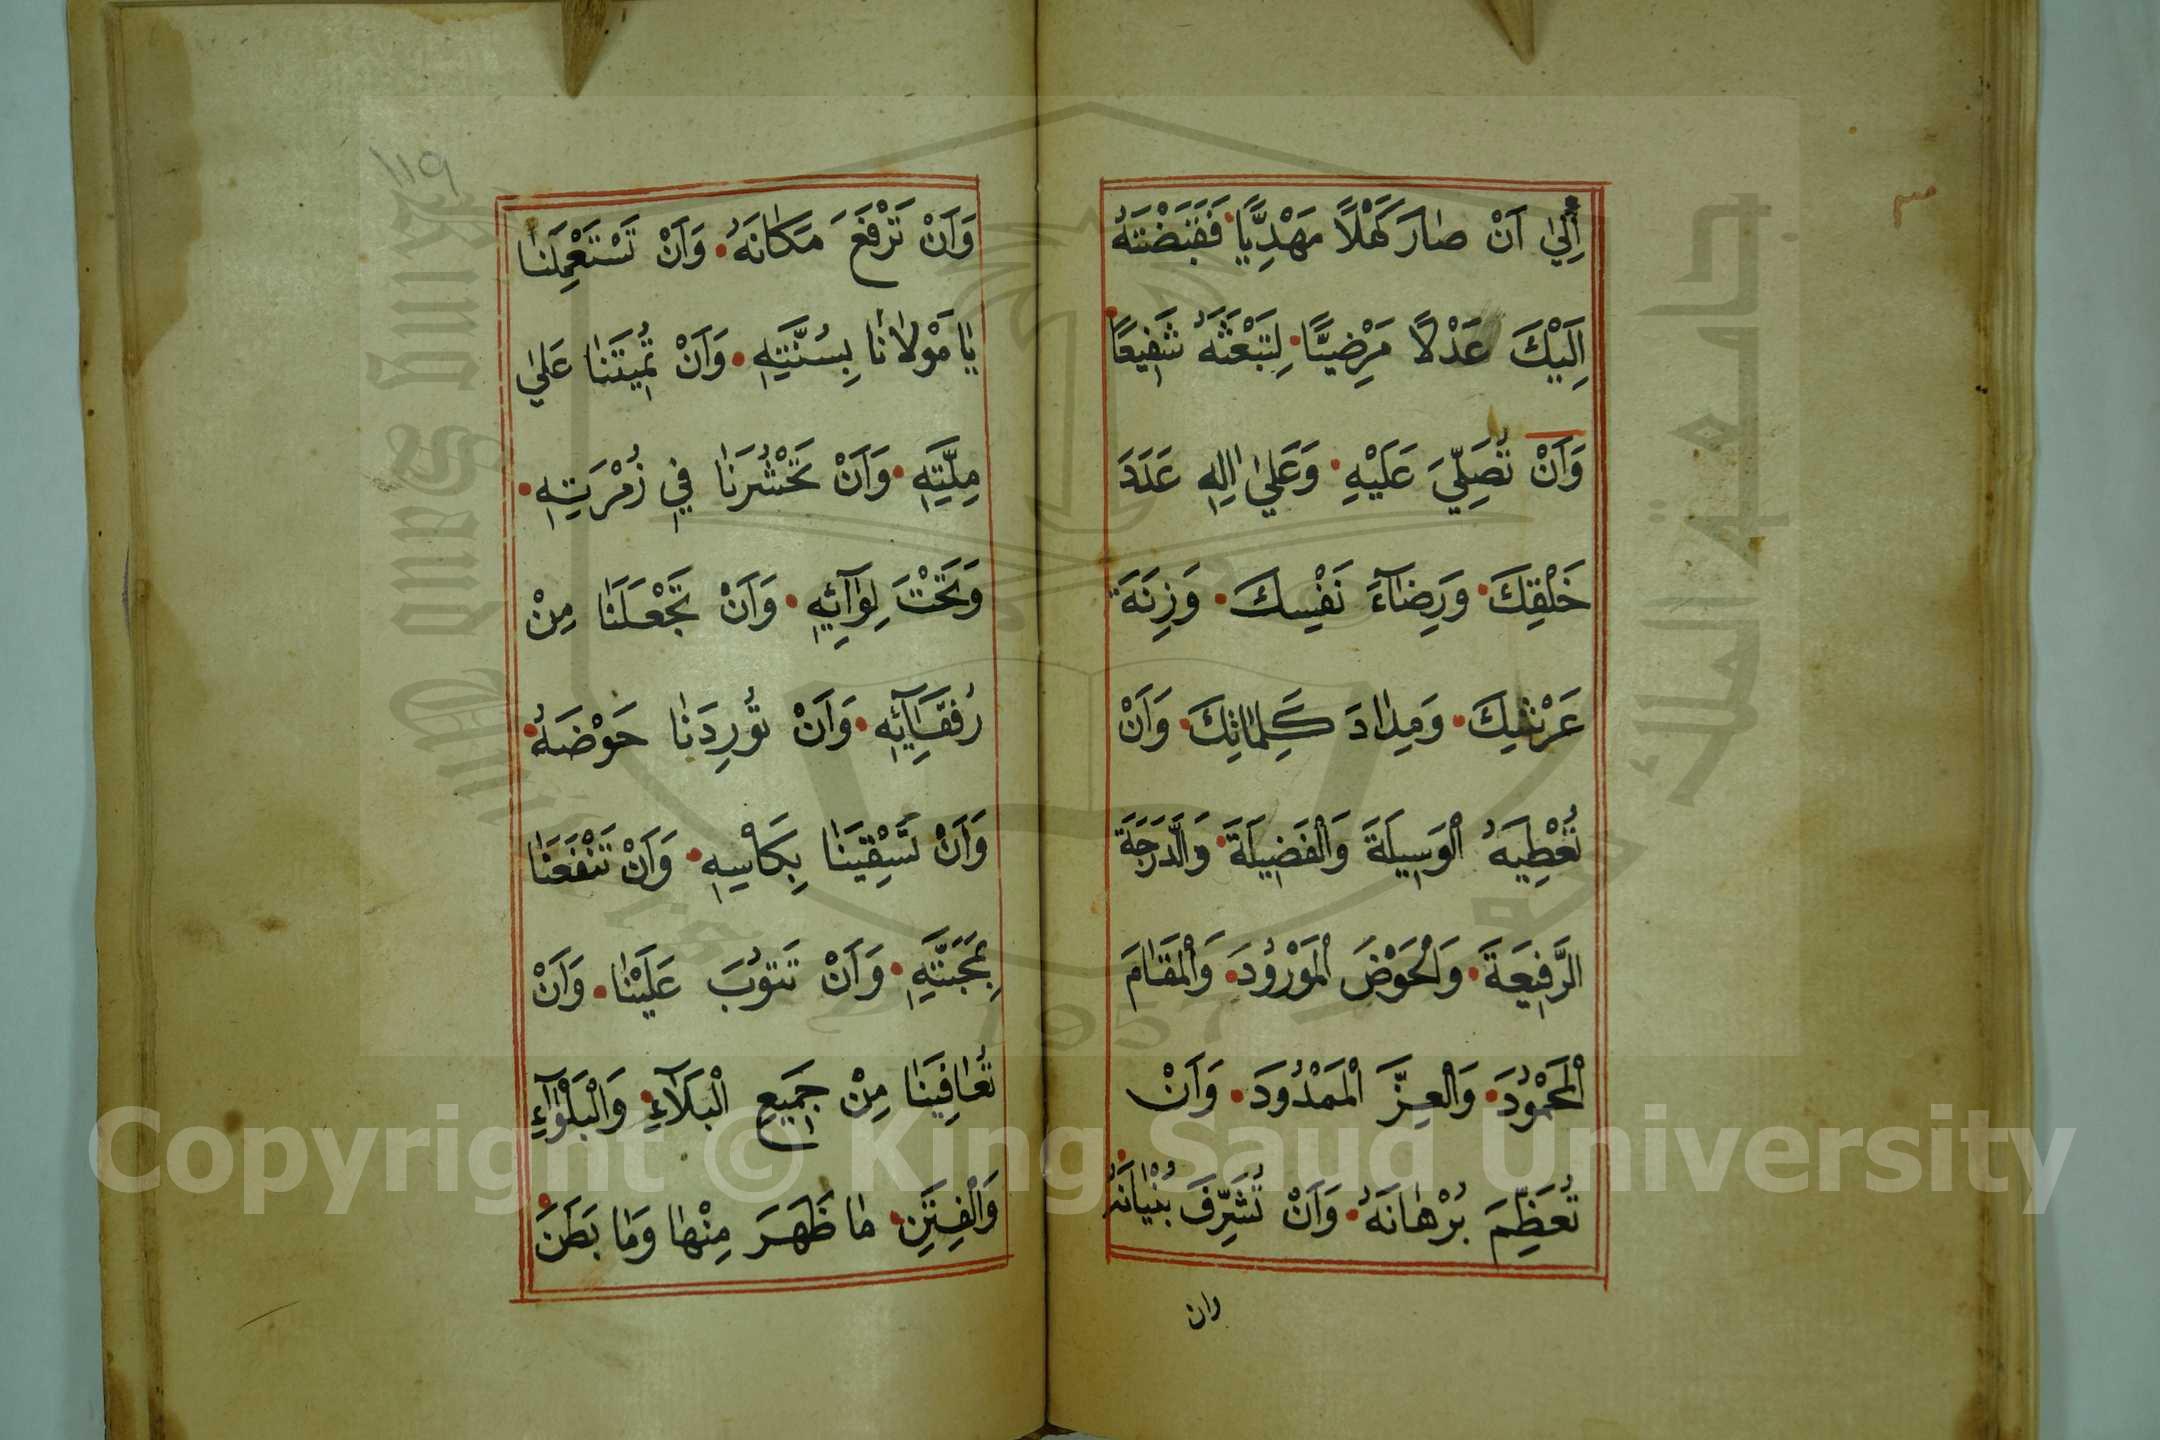 اِلٰى اَنْ صَارَ كَهْلًا مَهْدِيًّا فَقَبَضْتَهُ
اِلَيْكَ عَدْلًا مَرْضِيًّا لِتَبْعَثَهُ شَفِيعًا
وَاَنْ تُصَلِّيَ عَلَيْهِ وَعَلٰى اٰلِهِ عَدَدَ
خَلْقِكَ وَرِضَآءَ نَفْسِكَ وَزِنَةَ
عَرْشِكَ وَمِدَادَ كَلِمَاتِكَ وَاَنْ
تُعْطِيَهُ الْوَسِيلَةَ وَالْفَضِيلَةَ وَالدَّرَجَةَ
الرَّفِيعَةَ وَالْحَوْضَ الْمَوْرُودَ وَالْمَقَامَ
الْمَحْمُودَ وَالْعِزَّ الْمَمْدُودَ وَاَنْ
تُعَظِّمَ بُرْهَانَهُ وَاَنْ تُشَرِّفَ بُنْيَانَهُ
وان
١١٩
وَاَنْ تَرْفَعَ مَكَانَهُ وَاَنْ تَسْتَعْمِلَنَا
يَا مَوْلَانَا بِسُنَّتِهِ وَاَنْ تُمِيتَنَا عَلٰى
مِلَّتِهِ وَاَنْ تَحْشُرَنَا فِي زُمْرَتِهِ
وَتَحْتَ لِوَآئِهِ وَاَنْ تَجْعَلَنَا مِنْ
رُفَقَآئِهِ وَاَنْ تُورِدَنَا حَوْضَهُ
وَاَنْ تَسْقِيَنَا بِكَاْسِهِ وَاَنْ تَنْفَعَنَا
بِمَحَبَّتِهِ وَاَنْ تَتُوبَ عَلَيْنَا وَاَنْ
تُعَافِيَنَا مِنْ جَمِيعِ الْبَلَآءِ وَالْبَلْوَآءِ
وَالْفِتَنِ مَا ظَهَرَ مِنْهَا وَمَا بَطَنَ
جامعة الملك سعود
King Saud University
1957
Copyright © King Saud University